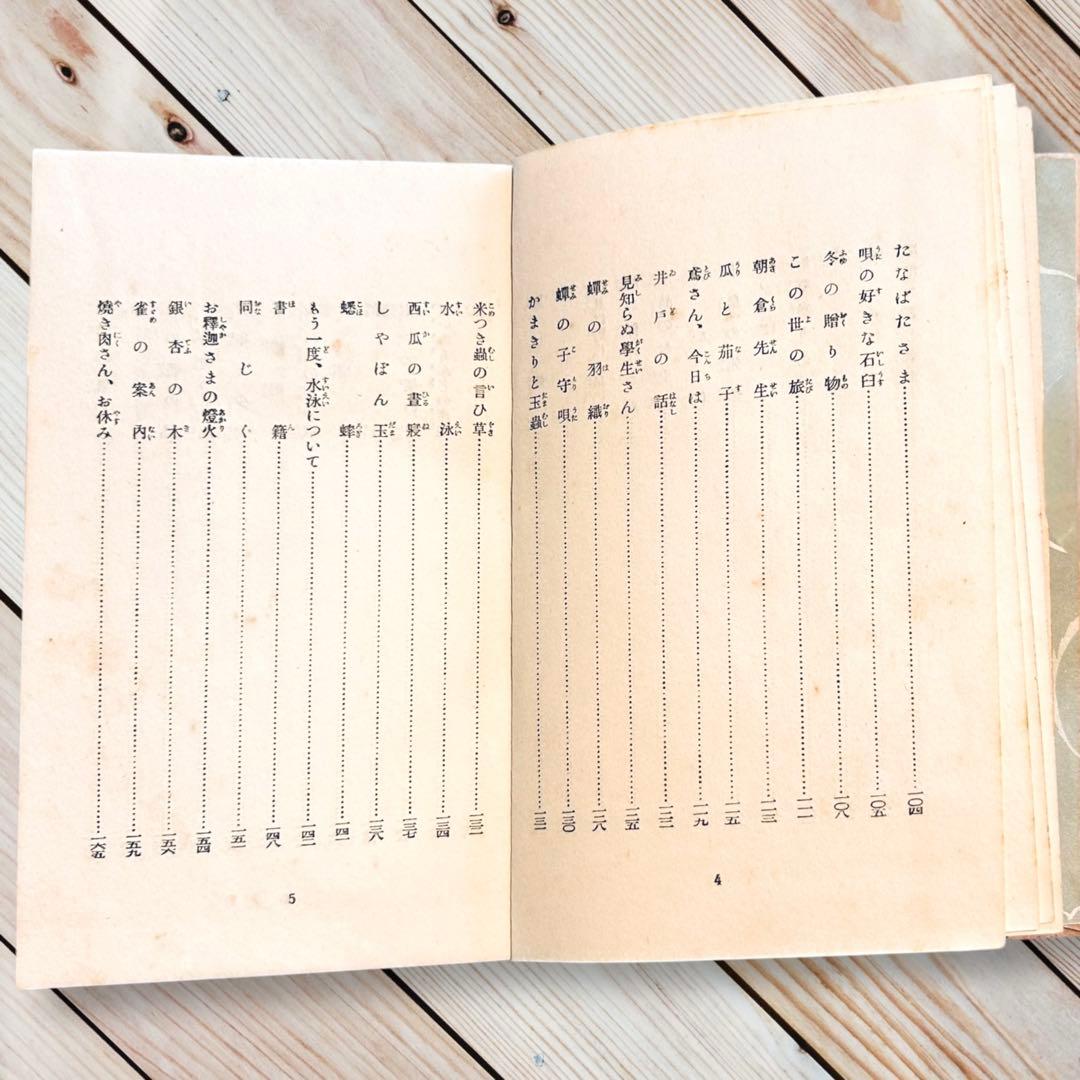 たなばたさま……一〇四
唄の好きな石臼……一〇五
冬の贈り物……一〇八
この世の旅……一一一
朝倉先生……一一三
瓜と茄子……一一五
鳶さん、今日は……一一九
井戸の話……一二二
見知らぬ學生さん……一二五
蟬の羽織……一二八
蟬の子守唄……一三〇
かまきりと玉蟲……一三一
4
米つき蟲の言ひ草……一三二
水泳……一三四
西瓜の晝寢……一三七
しやぼん玉……一三八
蟋蟀……一四一
もう一度、水泳について……一四二
書籍……一四八
同じく……一五一
お釋迦さまの燈火……一五四
銀杏の木……一五六
雀の案內……一五九
燒き肉さん、お休み……一六五
5